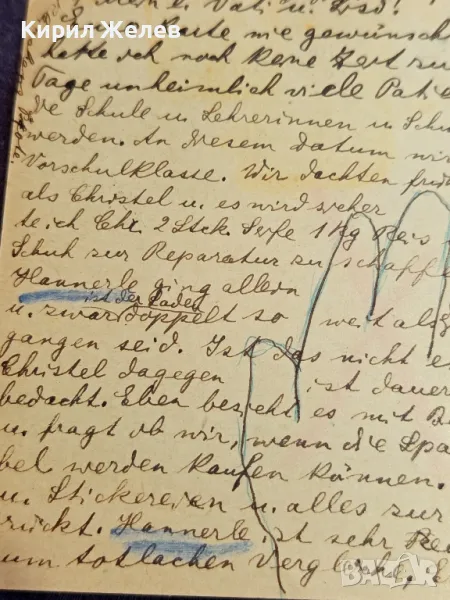 Кирил Желев
Mein ei Vati u.
Karte nie gewünsch
hatte ich noch keine Zeit zu
Tage unheimlich viele Patie
Die Schule u. Lehrerinnen u. Schu
werden. An diesem datum wir
Vorschulklasse. Wir dachten früh
als Christel u. es wird sicher
te ich Chr. 2 Stck. Seife 1 Kg Reis
Schuh zur Reparatur zu schaffe
Hannerle ging allein
ist der Laden
u. zwar doppelt so weit als
gangen seid. Ist das nicht e
Christel dagegen ist dauer
bedacht. Eben bezieht es mit B
u. fragt ob wir, wenn die Spa
bel werden kaufen können.
u. Stickereien u. alles zur
rückt. Hannerle ist sehr
um totlachen. E
bazar